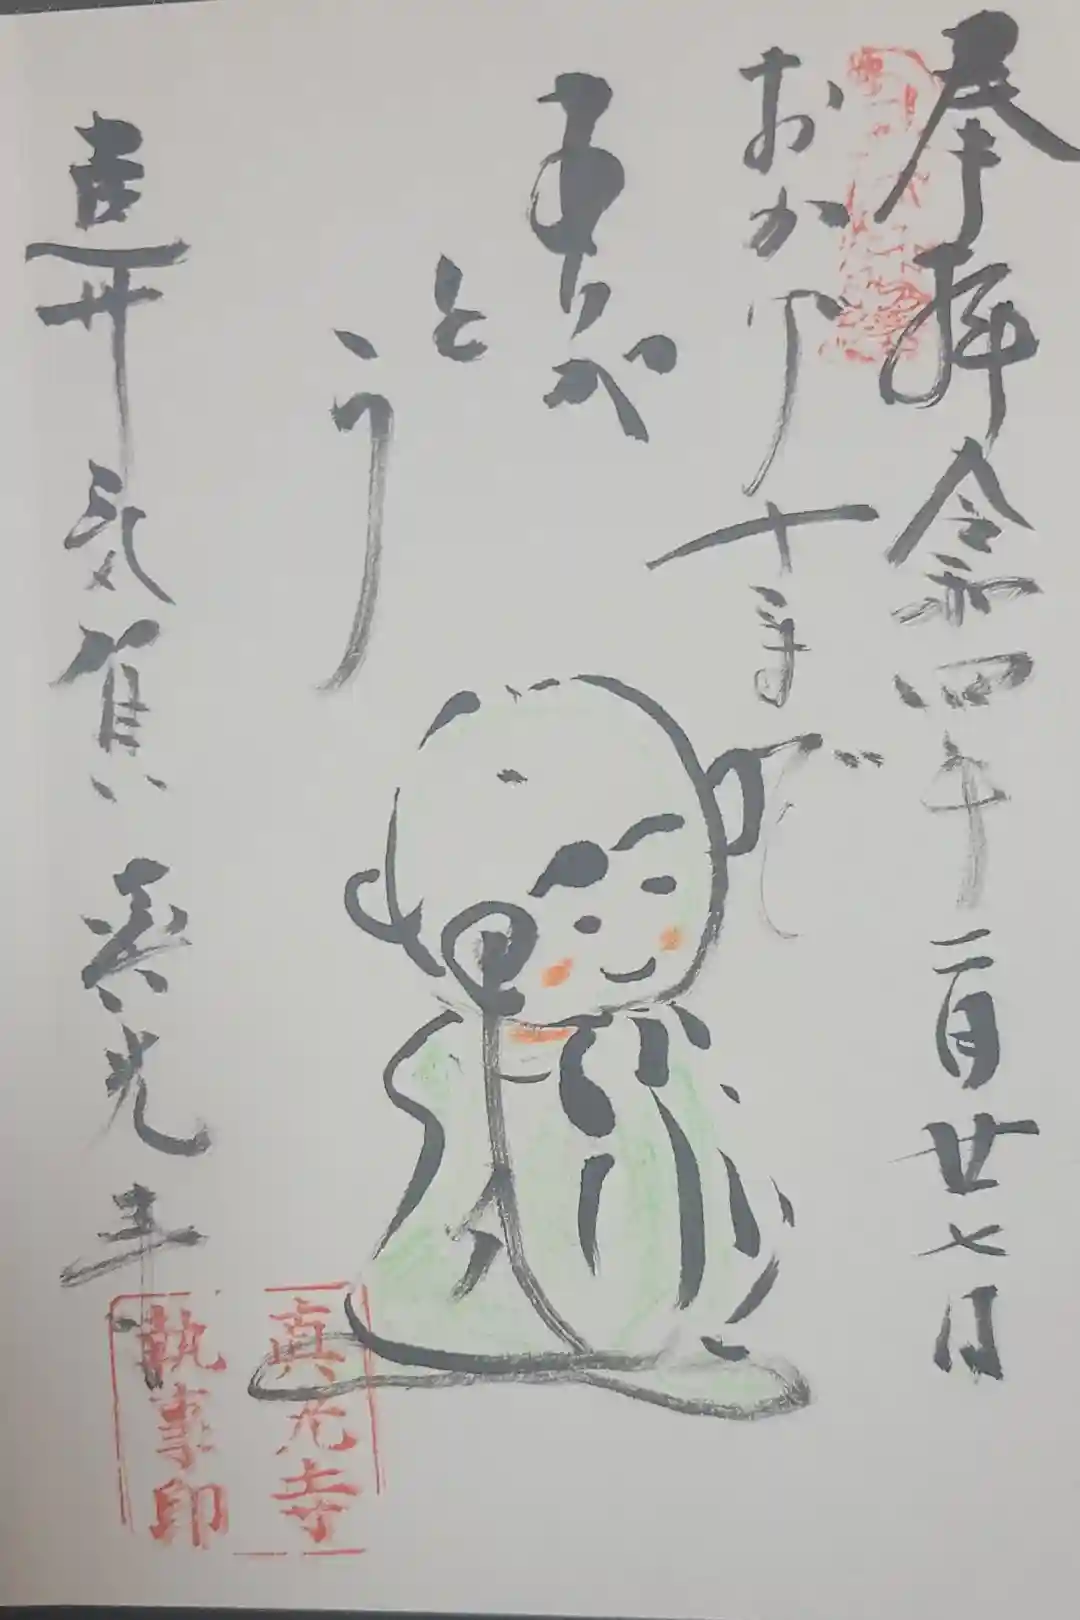 奉拝 令和四年二月廿七日
おかげ
十まで
ありが
と
う
遠州 気賀 真光寺
真光寺
執事印